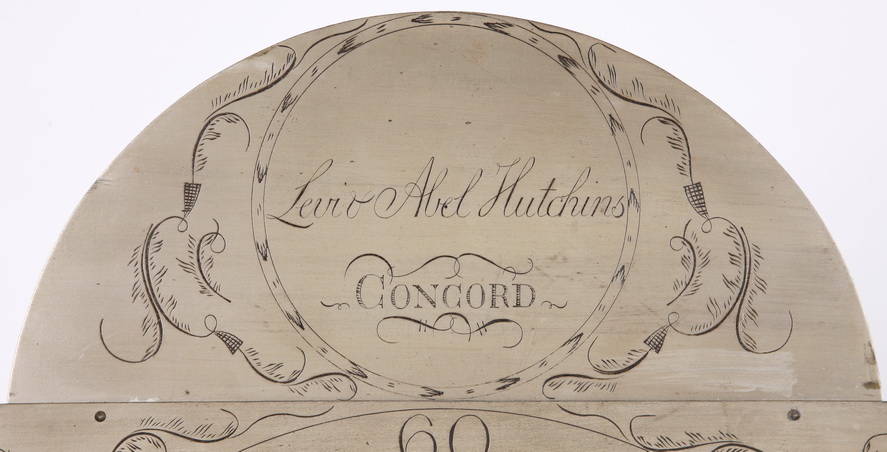 Levi & Abel Hutchins
CONCORD
60